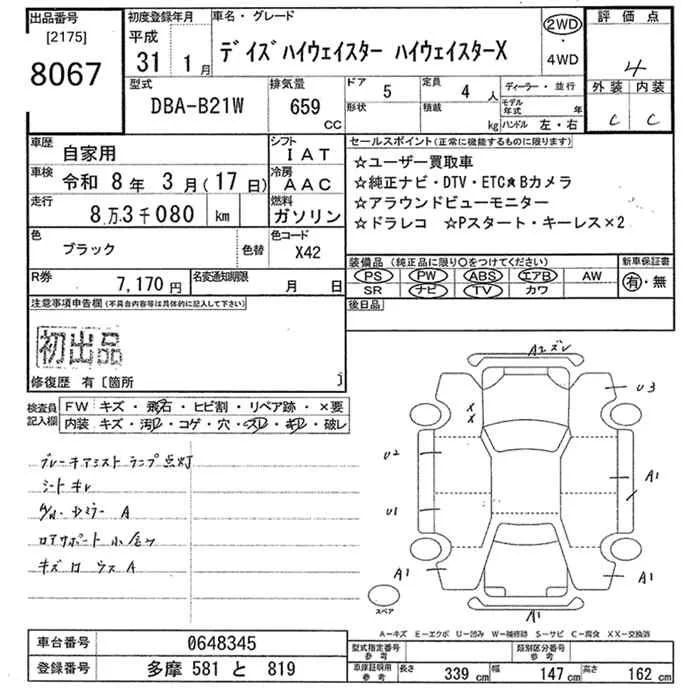 出品番号
[2175]
8067
初度登録年月
平成
31 1月
車名・グレード
デイズハイウェイスター ハイウェイスターX
2WD
・
4WD
評価点
4
外装 内装
C C
型式
DBA-B21W
排気量
659
CC
ドア
5
形状
定員
4人
積載
kg
ディーラー・並行
モデル年式 年
ハンドル 左・右
車歴
自家用
シフト
IAT
車検
令和 8年 3月(17日)
冷房
AAC
走行
8万3千080 km
燃料
ガソリン
色
ブラック
色替
色コード
X42
R券
7,170円
名変通知期限
月 日
セールスポイント(正常に機能するものに限ります)
☆ユーザー買取車
☆純正ナビ・DTV・ETC★Bカメラ
☆アラウンドビューモニター
☆ドラレコ ☆Pスタート・キーレス×2
装備品(純正品に限り○をつけてください)
新車保証書
PS PW ABS エアB AW
SR ナビ TV カワ
有・無
後日品
注意事項申告欄(不具合内容等は具体的に記入して下さい)
初出品
修復歴 有〔箇所 〕
検査員記入欄
FW キズ・飛石・ヒビ割・リペア跡・×要
内装 キズ・汚レ・コゲ・穴・スレ・キレ・破レ
ブレーキアシスト ランプ点灯
シートキレ
ドアミラー A
コアサポート 小
キズ ウス A
A2ズレ
U3
X
X
U2
A1
U1
A1
A1
A1
スペア
A-キズ E-エクボ U-凹み W-補修跡 S-サビ C-腐食 XX-交換済
車台番号
0648345
登録番号
多摩 581 と 819
型式指定番号
参考
類別区分番号
参考
車庫証明用
参考
長さ
339 cm
幅
147 cm
高さ
162 cm